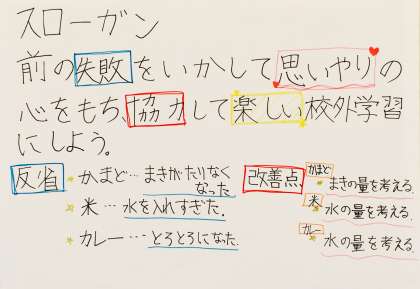 スローガン
前の失敗をいかして思いやりの
心をもち、協力して楽しい校外学習
にしよう。
反省
かまど…まきがたりなく
なった
米…水を入れすぎた。
カレー…とろとろになった。
改善点
かまど
まきの量を考える
米
水の量を考える。
カレー
水の量を考える。